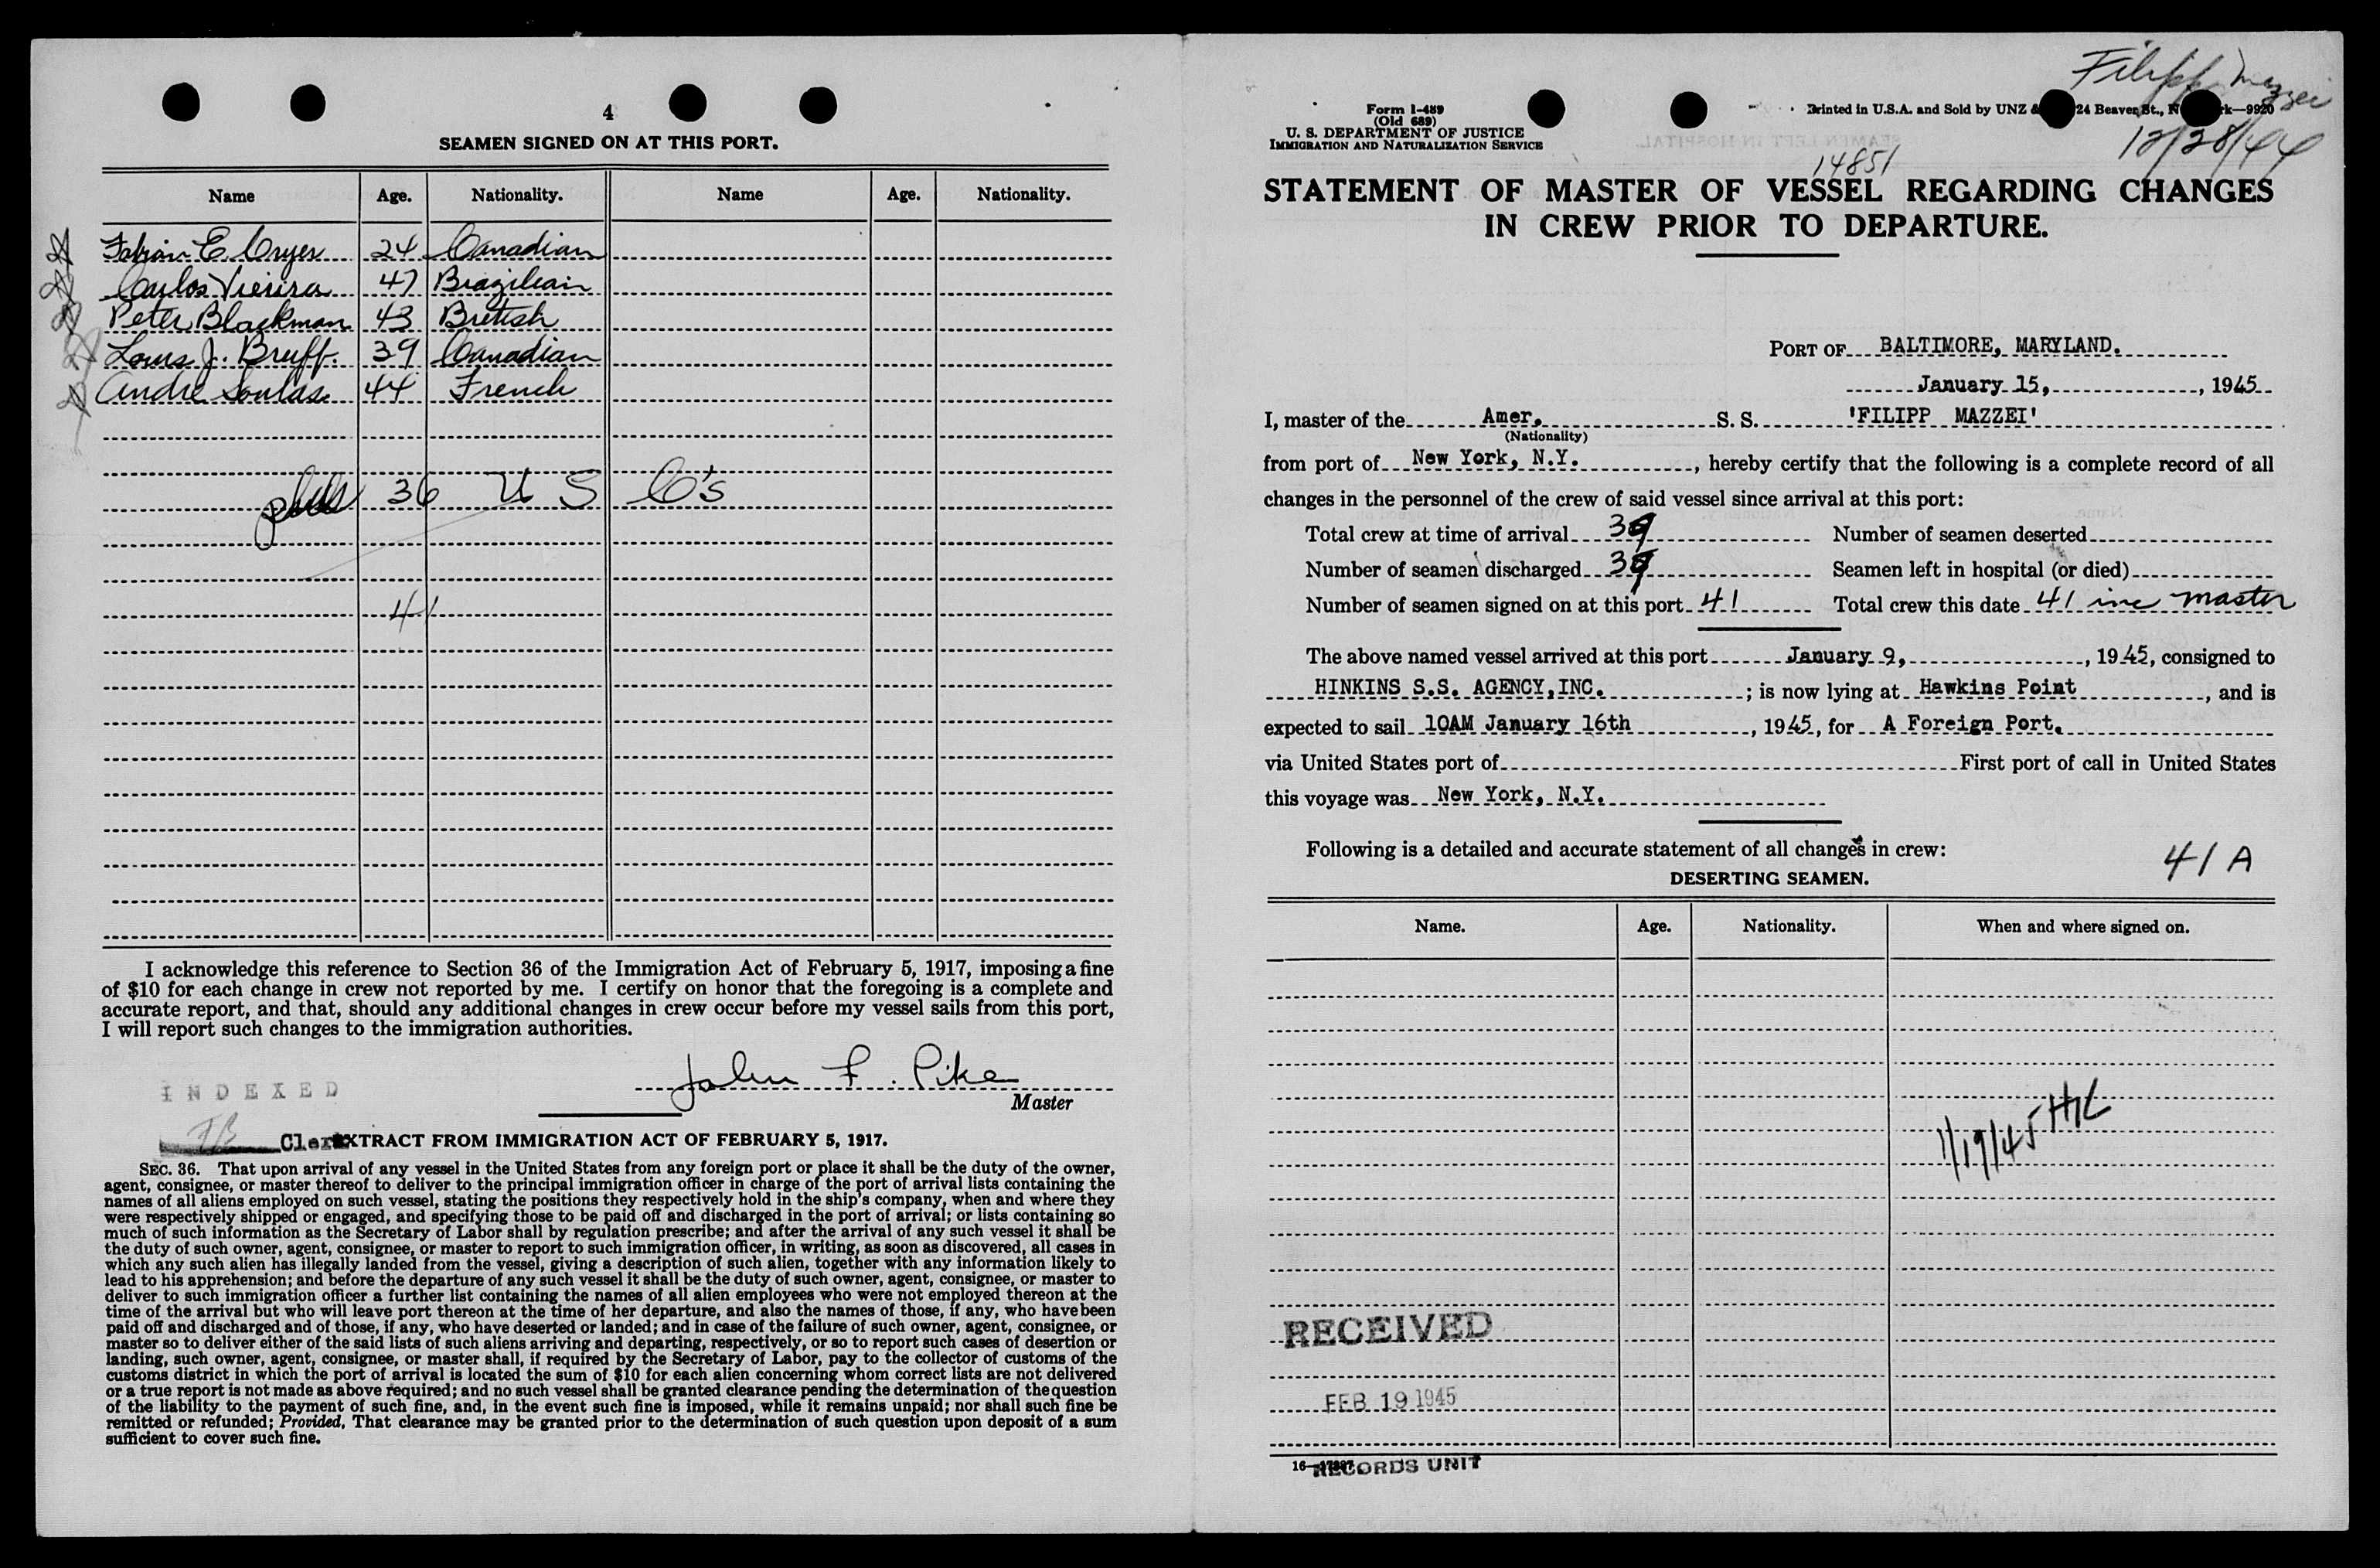 4
SEAMEN SIGNED ON AT THIS PORT.
Name Age. Nationality. Name Age. Nationality.
Fabian E Cryer 24 Canadian
Carlos Vieira 47 Brazilian
Peter Blackman 43 British
Louis J. Bruff. 39 Canadian
Andre Soulas 44 French
plus 36 U S C's
41
I acknowledge this reference to Section 36 of the Immigration Act of February 5, 1917, imposing a fine
of $10 for each change in crew not reported by me. I certify on honor that the foregoing is a complete and
accurate report, and that, should any additional changes in crew occur before my vessel sails from this port,
I will report such changes to the immigration authorities.
John F. Pike
Master
INDEXED
FB Clerk
EXTRACT FROM IMMIGRATION ACT OF FEBRUARY 5, 1917.
SEC. 36. That upon arrival of any vessel in the United States from any foreign port or place it shall be the duty of the owner,
agent, consignee, or master thereof to deliver to the principal immigration officer in charge of the port of arrival lists containing the
names of all aliens employed on such vessel, stating the positions they respectively hold in the ship's company, when and where they
were respectively shipped or engaged, and specifying those to be paid off and discharged in the port of arrival; or lists containing so
much of such information as the Secretary of Labor shall by regulation prescribe; and after the arrival of any such vessel it shall be
the duty of such owner, agent, consignee, or master to report to such immigration officer, in writing, as soon as discovered, all cases in
which any such alien has illegally landed from the vessel, giving a description of such alien, together with any information likely to
lead to his apprehension; and before the departure of any such vessel it shall be the duty of such owner, agent, consignee, or master to
deliver to such immigration officer a further list containing the names of all alien employees who were not employed thereon at the
time of the arrival but who will leave port thereon at the time of her departure, and also the names of those, if any, who have been
paid off and discharged and of those, if any, who have deserted or landed; and in case of the failure of such owner, agent, consignee, or
master so to deliver either of the said lists of such aliens arriving and departing, respectively, or so to report such cases of desertion or
landing, such owner, agent, consignee, or master shall, if required by the Secretary of Labor, pay to the collector of customs of the
customs district in which the port of arrival is located the sum of $10 for each alien concerning whom correct lists are not delivered
or a true report is not made as above required; and no such vessel shall be granted clearance pending the determination of the question
of the liability to the payment of such fine, and, in the event such fine is imposed, while it remains unpaid; nor shall such fine be
remitted or refunded; Provided, That clearance may be granted prior to the determination of such question upon deposit of a sum
sufficient to cover such fine.
Filipp Mazzei
12/28/44
Form I-489
(Old 689)
U. S. DEPARTMENT OF JUSTICE
IMMIGRATION AND NATURALIZATION SERVICE
Printed in U.S.A. and Sold by UNZ & 24 Beaver St., N k—9920
14851
STATEMENT OF MASTER OF VESSEL REGARDING CHANGES
IN CREW PRIOR TO DEPARTURE.
PORT OF BALTIMORE, MARYLAND.
January 15, , 1945
I, master of the Amer. S. S. 'FILIPP MAZZEI'
(Nationality)
from port of New York, N.Y. , hereby certify that the following is a complete record of all
changes in the personnel of the crew of said vessel since arrival at this port:
Total crew at time of arrival 39 Number of seamen deserted
Number of seamen discharged 39 Seamen left in hospital (or died)
Number of seamen signed on at this port 41 Total crew this date 41 inc master
The above named vessel arrived at this port January 9, , 1945, consigned to
HINKINS S.S. AGENCY,INC. ; is now lying at Hawkins Point , and is
expected to sail 10AM January 16th , 1945, for A Foreign Port.
via United States port of First port of call in United States
this voyage was New York, N.Y.
Following is a detailed and accurate statement of all changes in crew:
41 A
DESERTING SEAMEN.
Name. Age. Nationality. When and where signed on.
1/19/45 HL
RECEIVED
FEB 19 1945
RECORDS UNIT